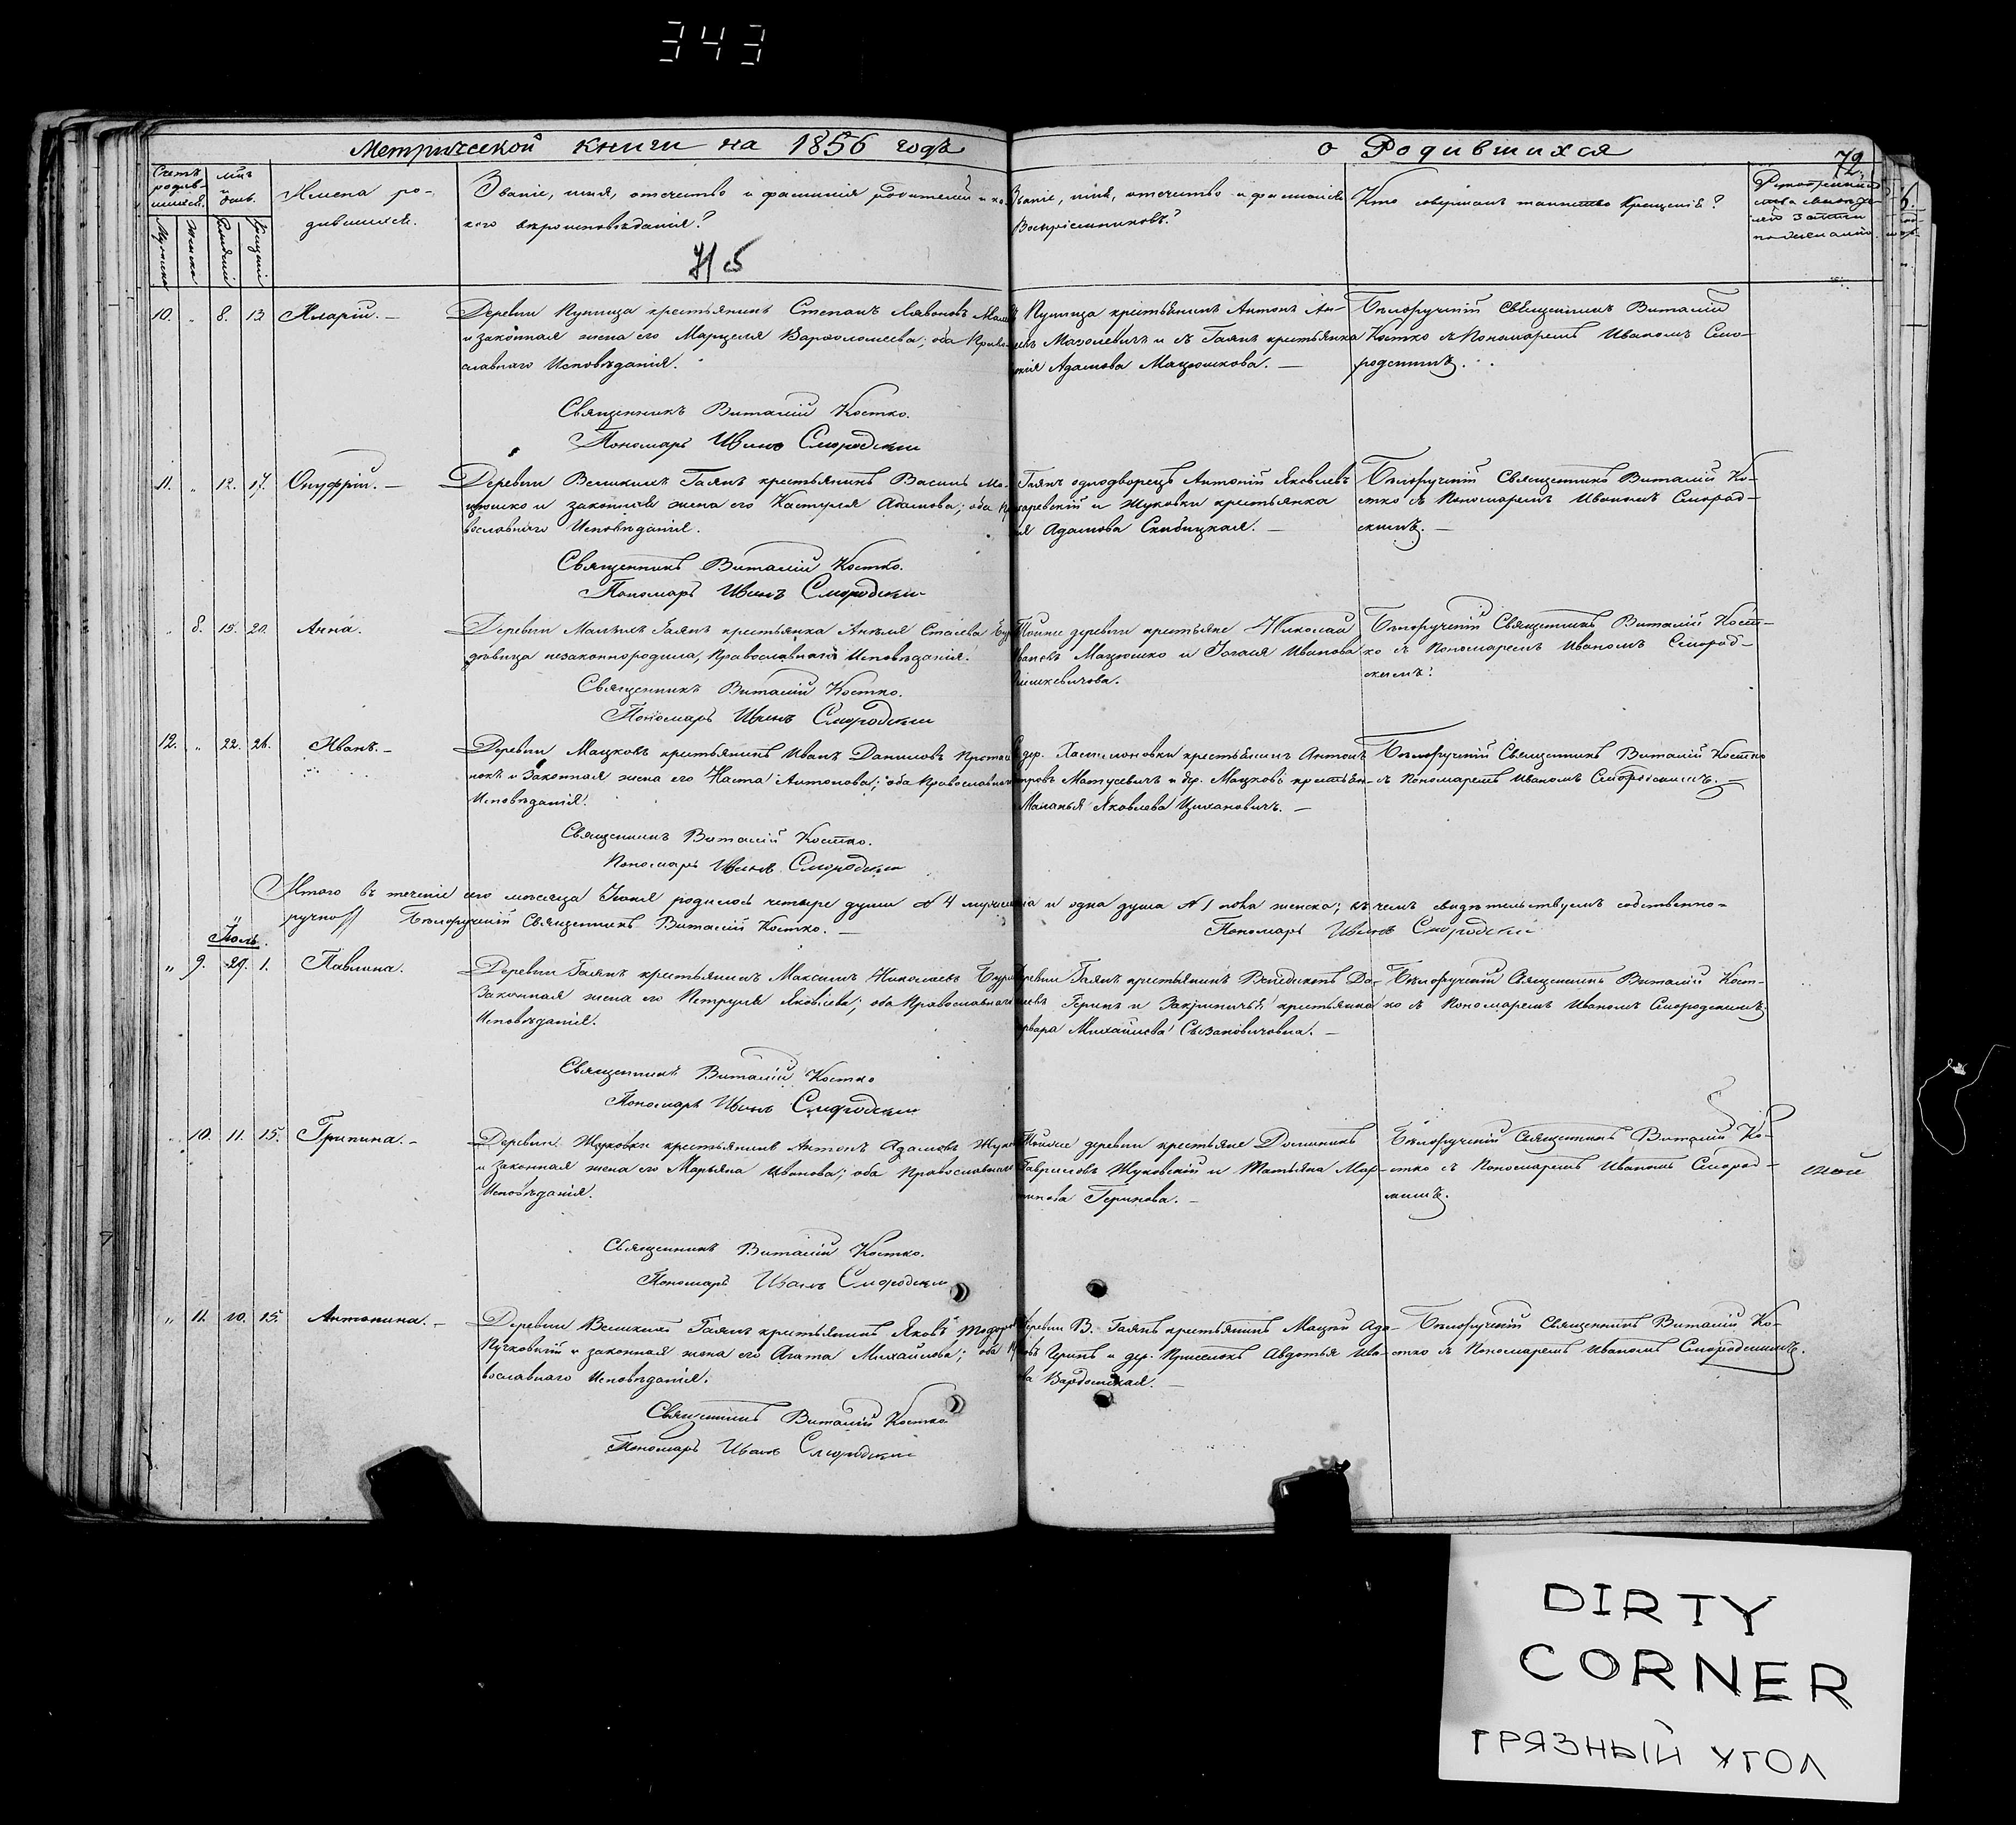 343
Метрической книги на 1856 годъ
о Родившихся
72.
Счетъ родив-шихся.
Мужеска
Женска
Рожденія
Крещенія
Имена ро-
дившихся.
Званіе, имя, отечество и фамилія родителей и ка-
кого вѣроисповѣданія?
Званіе, имя, отечество и фамилія
Воспріемниковъ?
Кто совершалъ таинство Крещенія?
10. „ 8. 13 Иларій. —
Деревни Пупища крестьянинъ Степанъ
и законная жена его Марцеля Варѳоломеева; оба Право
славнаго Исповѣданія.
Священникъ Виталій Костко.
Пономарь Иванъ Смородскій
Пупища крестьянинъ Антонъ Ан-
и Гаянъ крестьянка
Адамова Мацюшкова. —
Бѣлоручскій Священникъ Виталій
Костко съ Пономаремъ Иваномъ Смо-
родскимъ.
11. „ 12. 17. Онуфрій. —
Деревни Великихъ Гаянъ крестьянинъ Василь Ма-
цюшко и законная жена его Настуля Адамова; оба Пра
вославнаго Исповѣданія.
Священникъ Виталій Костко.
Пономарь Иванъ Смородскій
Гаянъ однодворецъ Антоній Яковлевъ
и Жуковки крестьянка
Адамова Скибицкая. —
Бѣлоручскій Священникъ Виталій Ко-
стко съ Пономаремъ Иваномъ Смород-
скимъ. —
„ 8. 15. 20. Анна.
Деревни Малыхъ Гаянъ крестьянка Анѣля
дѣвица незаконнородила, Православнаго Исповѣданія.
Священникъ Виталій Костко.
Пономарь Иванъ Смородскій
Тойже деревни крестьяне Николай
Ивановъ Мацюшко и Иванова
Бѣлоручскій Священникъ Виталій Кост-
ко съ Пономаремъ Иваномъ Смород-
скимъ.
12. „ 22. 26. Иванъ. —
Деревни Мацковъ крестьянинъ Иванъ Даниловъ
и законная жена его Наста Антонова; оба Православнаго
Исповѣданія.
Священникъ Виталій Костко.
Пономарь Иванъ Смородскій
дер. крестьянинъ Антонъ
Матусевичъ и дер. Мацковъ крестьян-
Маланья Яковлева Цихановичъ. —
Бѣлоручскій Священникъ Виталій Костко
съ Пономаремъ Иваномъ Смородскимъ. —
Итого въ теченіе сего мѣсяца Іюня родилось четыре души № 4 мужеска и одна душа № 1 пола женска; въ чемъ свидѣтельствуемъ собственно-
ручно// Бѣлоручскій Священникъ Виталій Костко. —
Пономарь Иванъ Смородскій
Іюль.
„ 9. 29. 1. Павлина.
Деревни Гаянъ крестьянинъ Максимъ Николаевъ
Законная жена его Петруля Яковлева; оба Православнаго
Исповѣданія.
Священникъ Виталій Костко
Пономарь Иванъ Смородскій
Гаянъ крестьянинъ Венедиктъ
Геринъ и крестьянка
Михайлова
Бѣлоручскій Священникъ Виталій Кост-
ко съ Пономаремъ Иваномъ Смородскимъ.
„ 10. 11. 15. Грипина. —
Деревни Жуковки крестьянинъ Антонъ Адамовъ
и законная жена его Марьяна Иванова; оба Православнаго
Исповѣданія.
Священникъ Виталій Костко.
Пономарь Иванъ Смородскій
Тойже деревни крестьяне Доминикъ
Гавриловъ Жуковскій и Татьяна Мар-
Геринова. —
Бѣлоручскій Священникъ Виталій Ко-
стко съ Пономаремъ Иваномъ Смород-
скимъ.
„ 11. 10. 15. Антонина. —
Деревни Великихъ Гаянъ крестьянинъ Яковъ
и законная жена его Агата Михайлова; оба Пра
вославнаго Исповѣданія.
Священникъ Виталій Костко
Пономарь Иванъ Смородскій
В. Гаянъ крестьянинъ Мацей Ада-
Геринъ и дер. Авдотья Ива-
Бѣлоручскій Священникъ Виталій Ко-
стко съ Пономаремъ Иваномъ Смородскимъ.
DIRTY
CORNER
ГРЯЗНЫЙ УГОЛ